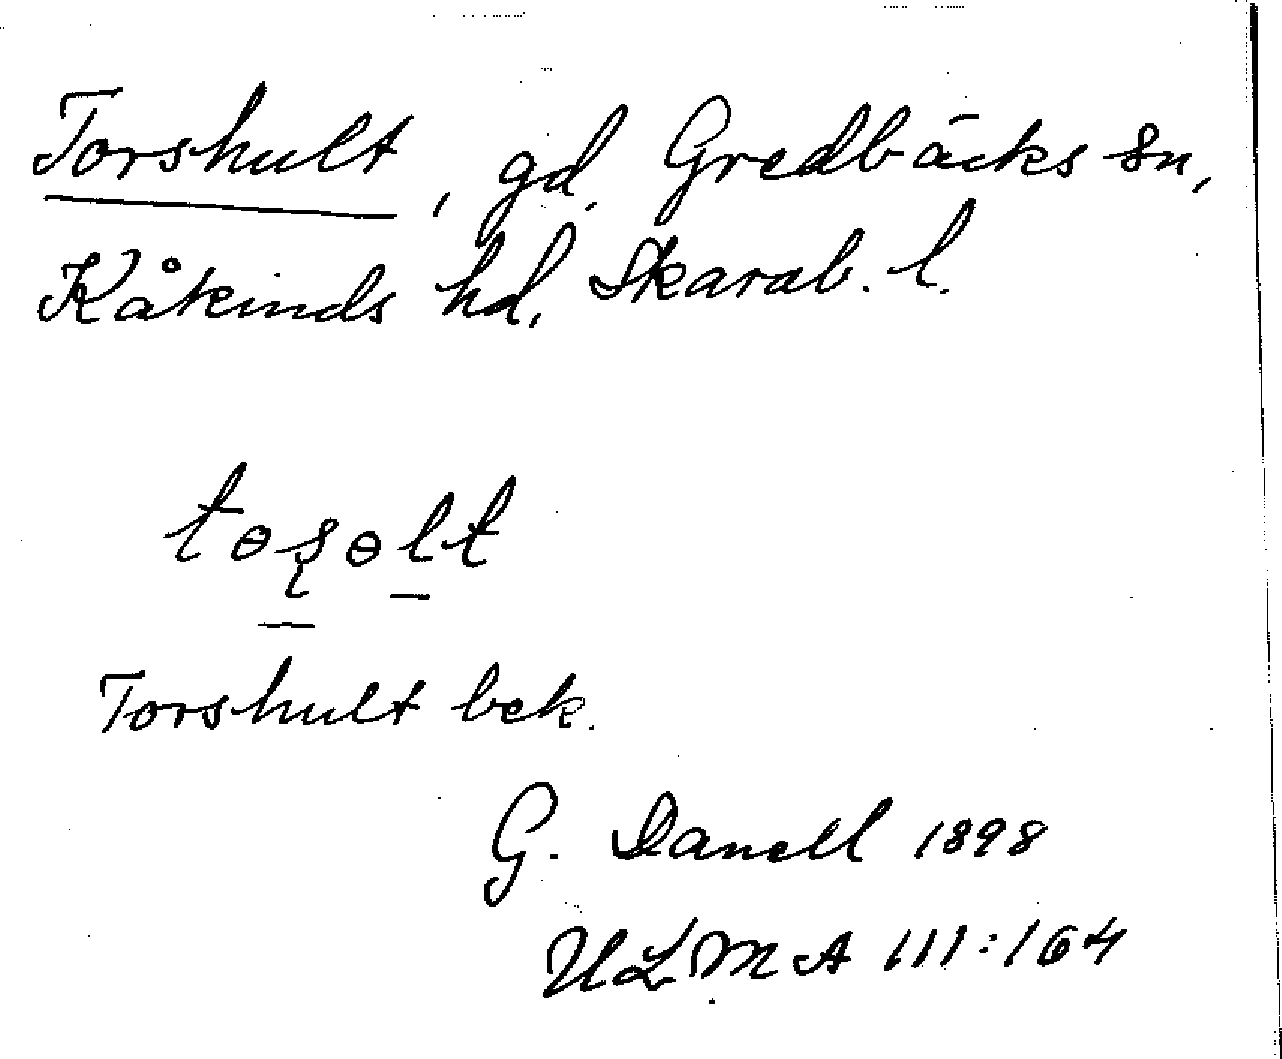 Torshult, gd, Gredbäcks sn,
Kåkinds hd, Skarab. l.
tɵʂɵlt
Torshult bek.
G. Danell 1898
ULMA 111:164